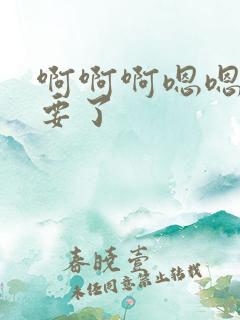 啊啊啊嗯嗯
要了
春晓壹
未经同意禁止转载